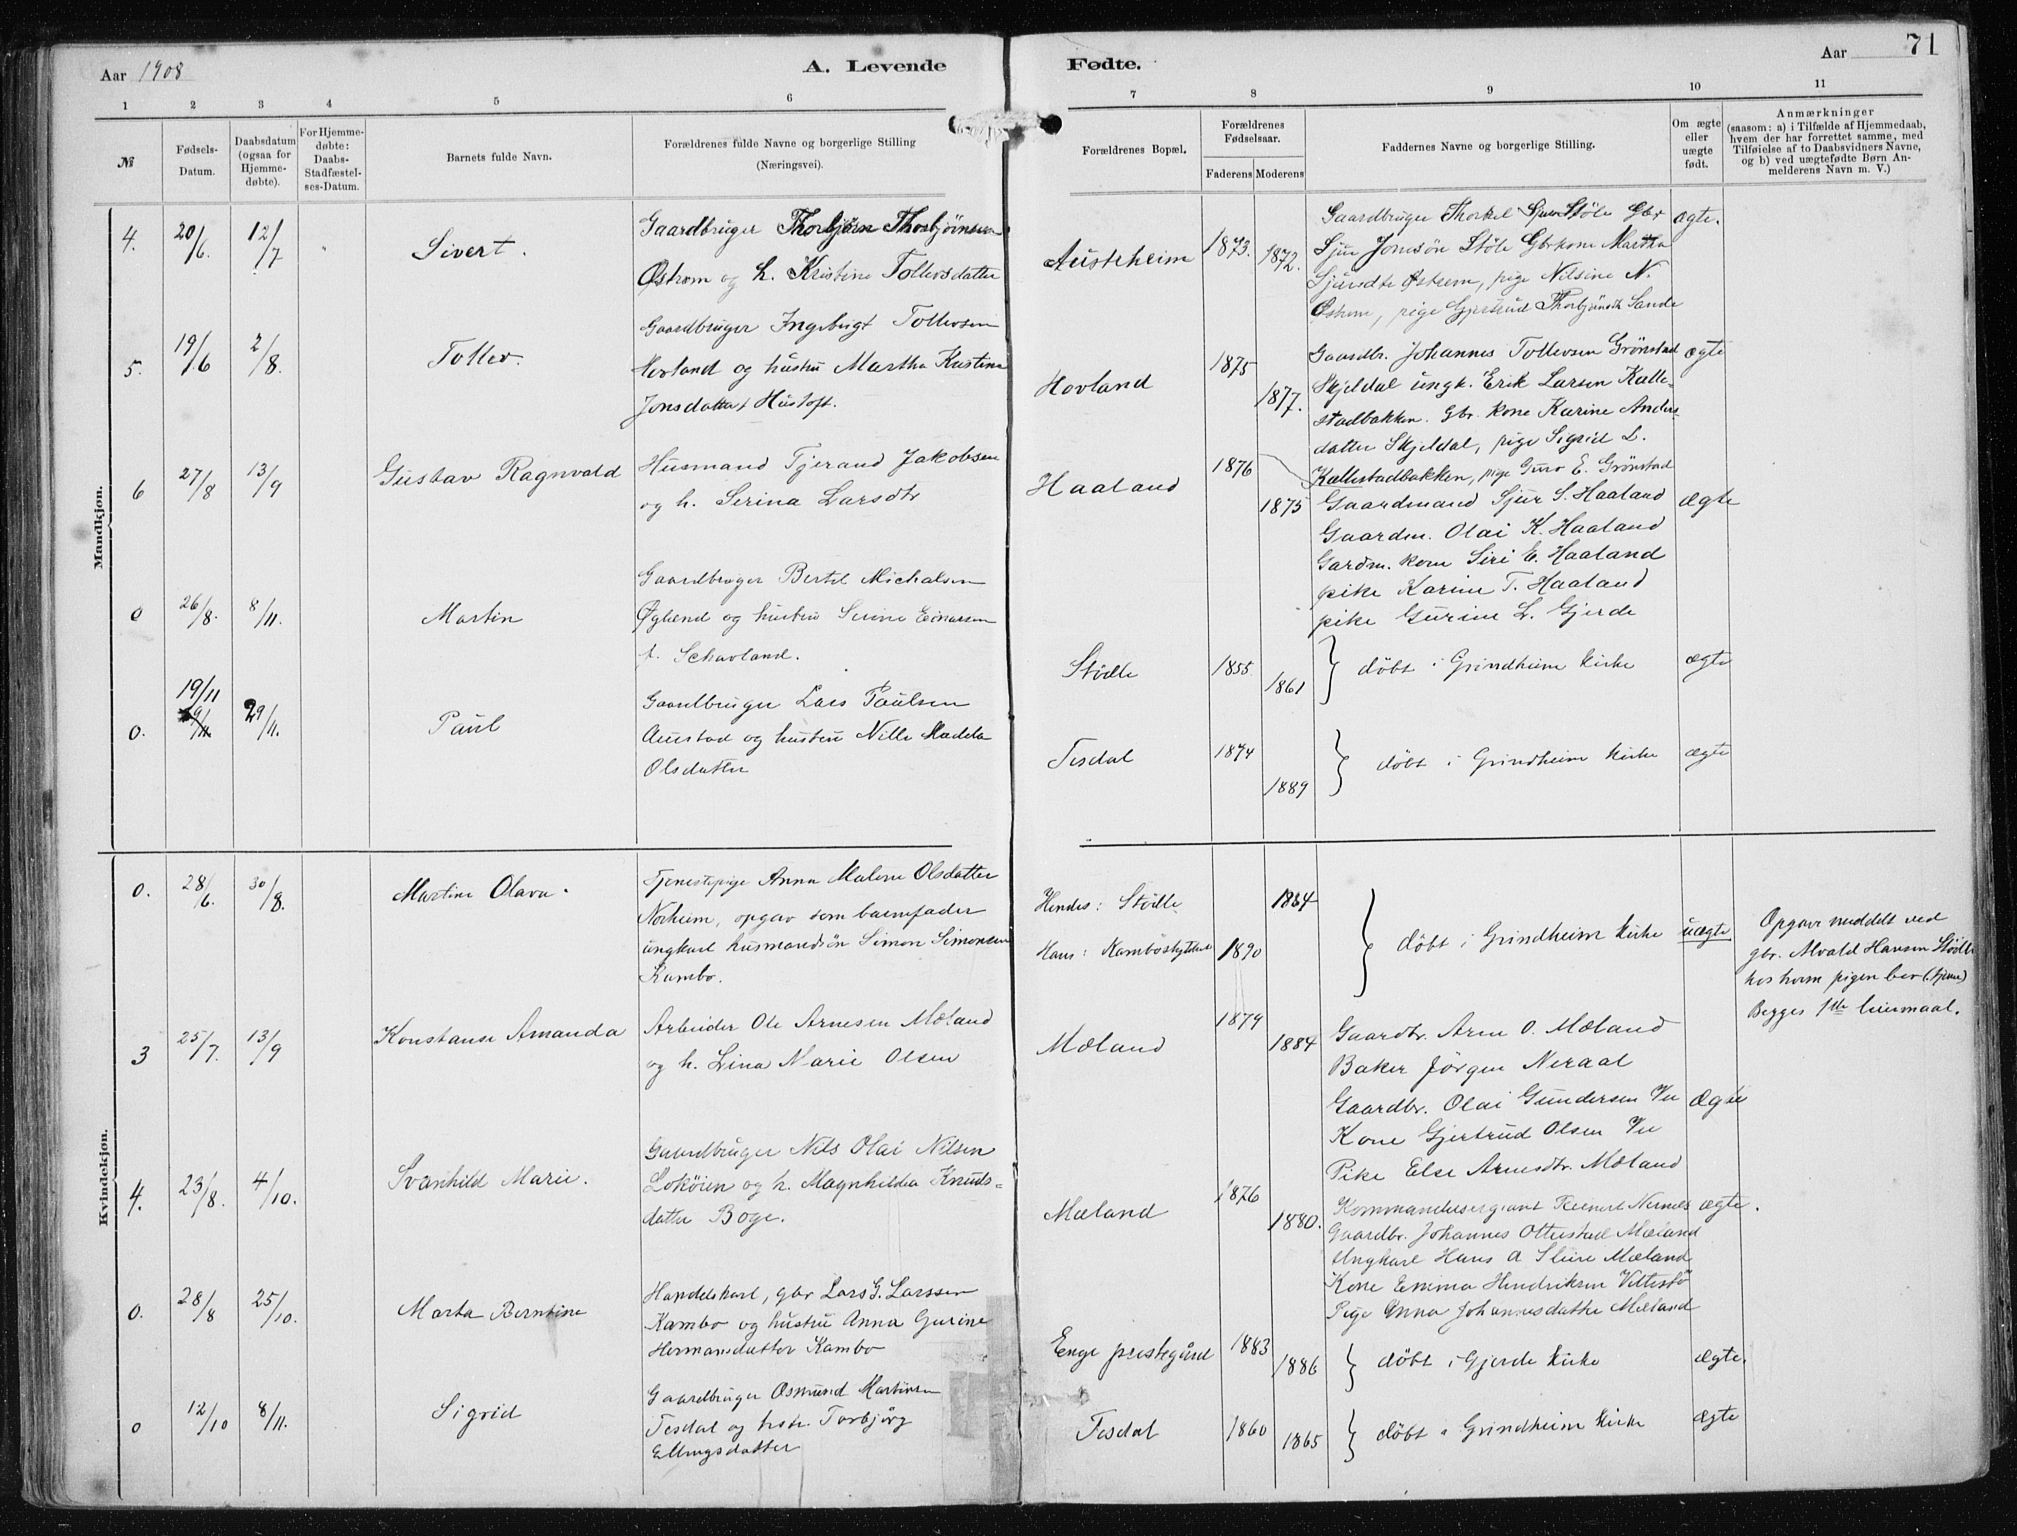 Aar 1908
A. Levende
Fødte.
Aar
71
1 2 3 4 5 6 7 8 9 10 11
№
Fødsels-
Datum.
Daabsdatum
(ogsaa for
Hjemme-
døbte).
For Hjemme-
døbte:
Daabs-
Stadfæstel-
ses-Datum.
Barnets fulde Navn.
Forældrenes fulde Navne og borgerlige Stilling
(Næringsvei).
Forældrenes Bopæl.
Forældrenes
Fødselsaar.
Faderens Moderens
Faddernes Navne og borgerlige Stilling.
Om ægte
eller
uægte
født.
Anmærkninger
(saasom: a) i Tilfælde af Hjemmedaab,
hvem der har forrettet samme, med
Tilføielse af to Daabsvidners Navne,
og b) ved uægtefødte Børn An-
melderens Navn m. V.)
Mandkjøn.
4. 20/6. 12/7 Sivert.
Gaardbruger Thorbjørn Thorbjørnsen
Østrem og h. Kristine Tollevsdatter
Austeheim 1873. 1872.
Gaardbruger Thorkel Støle Gbr
Sjur Jonesøn Støle Gbrkone Martha
Sjursdtr Østrem, pige Nilsine N.
Østrem, pige Gjertrud Thorbjønsdt Sande
ægte.
5. 19/6 2/8. Tollev.
Gaardbruger Ingebrigt Tollevsen
Hovland og hustru Martha Kristine
Jonsdatter Hustoft.
Hovland 1875 1877.
Gaardbr. Johannes Tollevsen Grønstad
Skjeldal ungk. Erik Larsen Kalle-
stadbakken. Gbr. kone Karine Anders-
datter Skjeldal, pige Sigrid L.
Kallestadbakken, pige Guro E. Grønstad
ægte
6 27/8 13/9 Gustav Ragnvald
Husmand Tjerand Jakobsen
og h. Serina Larsdtr
Haaland 1876 1875
Gaardmand Sjur S. Haaland
Gaardm. Olai K. Haaland
Gardm. kone Siri E. Haaland
pike Karine T. Haaland
pike Gurine L. Gjerde
ægte
0 26/8. 8/11. Martin
Gaardbruger Bertel Michalsen
Øglænd og hustru Serine Einarsen
f. Schavland.
Stödle 1855 1861
döbt i Grindheim kirke
ægte
0. 19/11 29/11. Paul
Gaardbruger Lars Paulsen
Austad og hustru Nille Madela
Olsdatter
Tesdal 1874 1889
döbt i Grindheim kirke
ægte
Kvindekjøn.
0. 28/6. 30/8. Martine Olava.
Tjenestepige Anna Malene Olsdatter
Norheim, opgav som barnefader
ungkarl husmandsön Simon Simonsen
Kambo.
Hendes: Stödle
Hans: 1890 1884
döbt i Grindheim kirke
uægte
Opgave meddelt ved
gbr. Alvald Hansen Stödle
hos hvem pigen bor (tjener)
Begges 1ste leiermaal.
3 25/7. 13/9 Konstanse Amanda
Arbeider Ole Arnesen Mæland
og h. Lina Marie Olsen
Mæland 1879 1884
Gaardbr. Arne O. Mæland
Baker Jörgen Neraal
Gaardbr. Olai Gundersen Vu
Kone Gjertrud Olsen Vu
Pike Else Arnesdtr. Mæland
Ægte
4. 23/8. 4/10. Svanhild Marie.
Gaardbruger Nils Olai Nilsen
Loköien og h. Magnhilda Knuds-
datter Boge.
Mæland 1876 1880.
Kommandersergeant Reinert Nernes
Gaardbr. Johannes Mæland
Ungkarl Hans A Slire Mæland
Kone Emma Hendriksen Vettestö
Pige Anna Johannesdatter Mæland
ægte.
0. 28/8 25/10. Marta Berntine
Handelskarl, gbr Lars G. Larssen
Kambo og hustru Anna Gurine
Hermansdatter Kambo
Enge prestegård 1883 1886
döbt i Gjerde kirke
ægte.
0 12/10 8/11. Sigrid
Gaardbruger Osmund Martinsen
Tesdal og hstr. Torbjörg
Ellingsdatter
Tesdal 1860 1865
döbt i Grindheim kirke
ægte